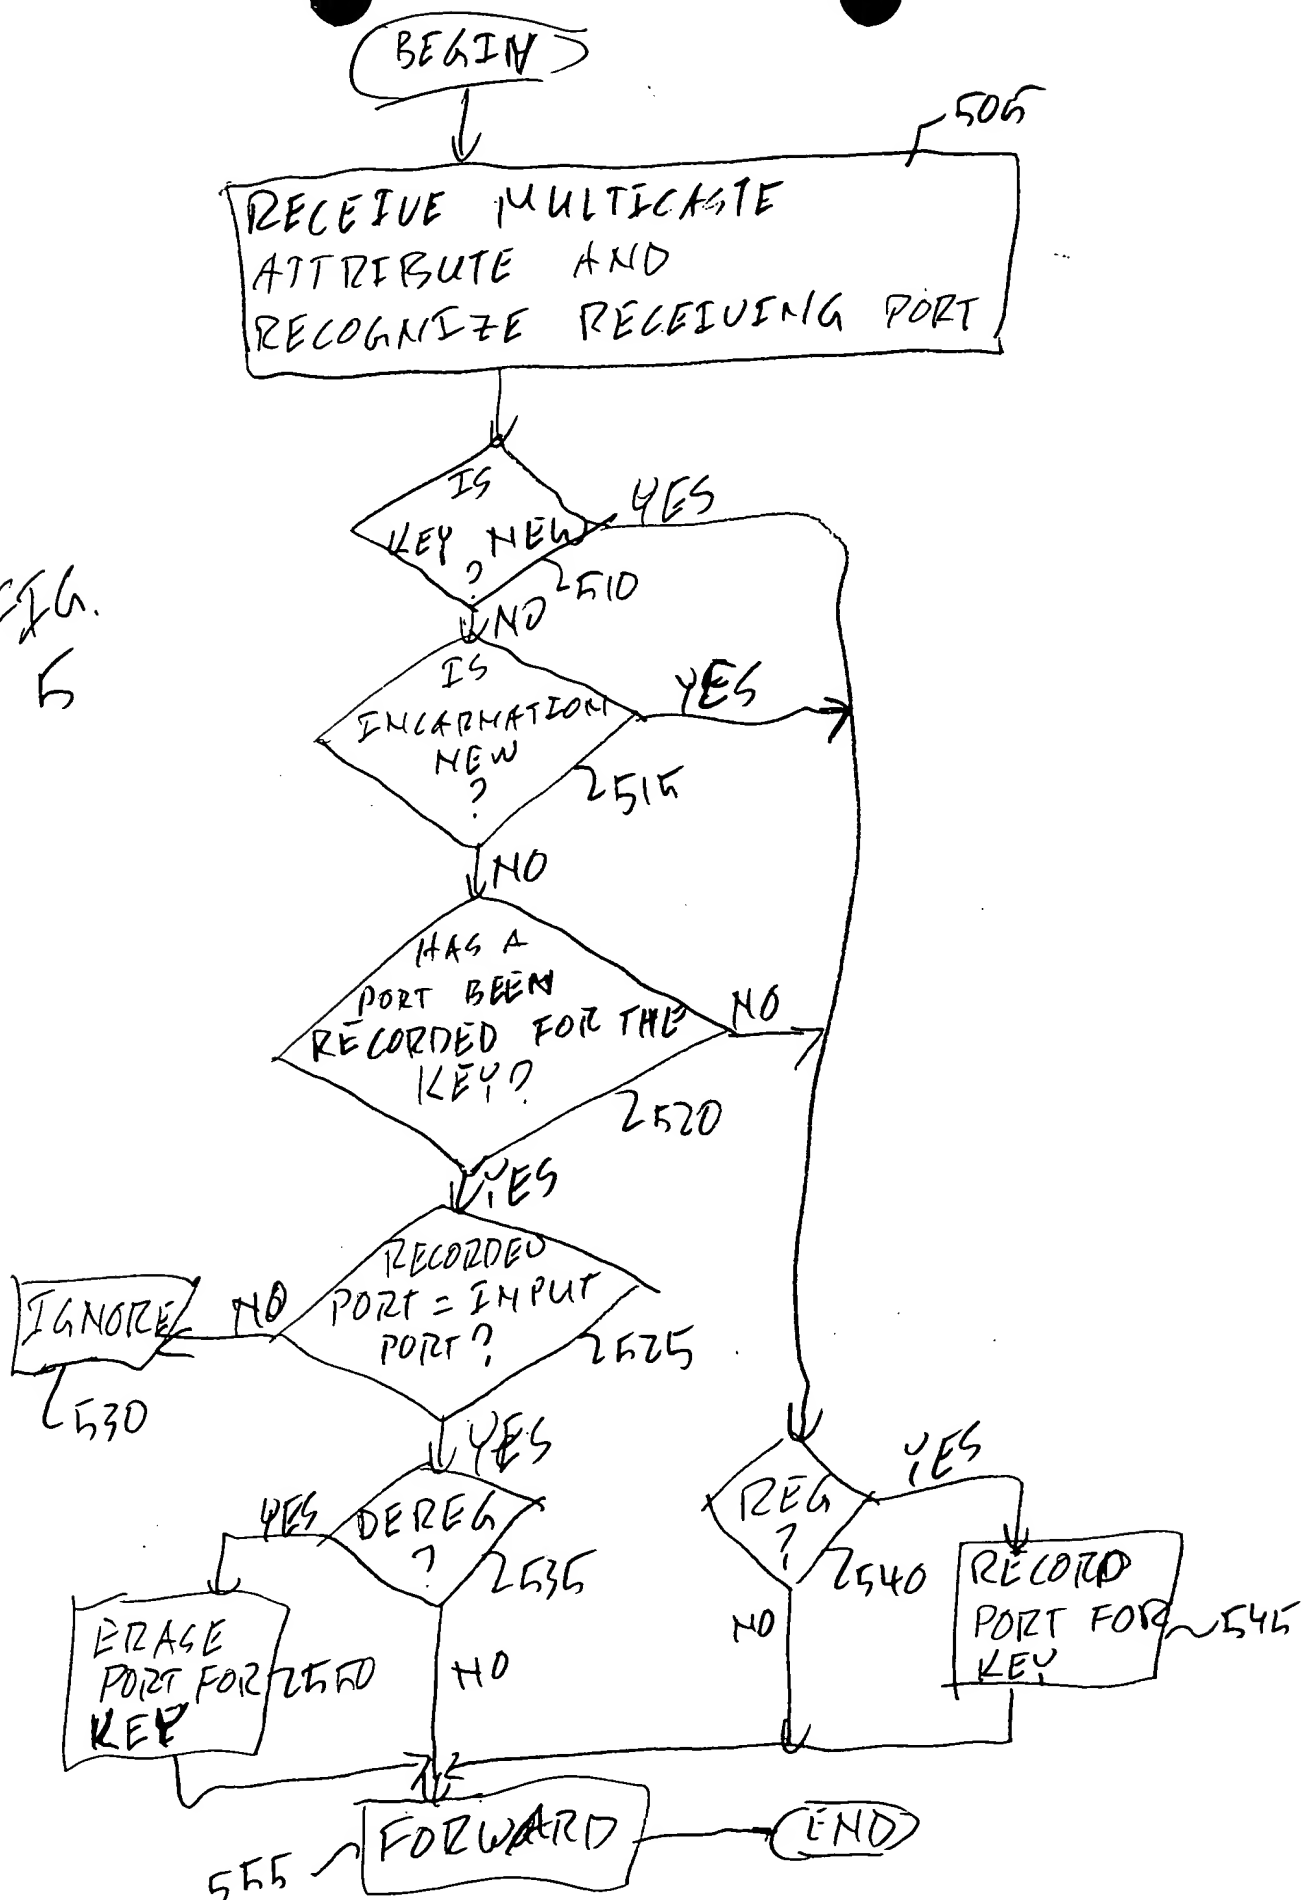 BEGIN
505
RECEIVE MULTICASTE
ATTRIBUTE AND
RECOGNIZE RECEIVING PORT
IS
KEY NEW
?
YES
510
NO
FIG.
5
IS
INCARNATION
NEW
?
YES
515
NO
HAS A
PORT BEEN
RECORDED FOR THE
KEY?
NO
520
YES
RECORDED
PORT = INPUT
PORT?
525
NO
IGNORE
530
YES
DEREG
?
YES
535
NO
REG
?
YES
540
NO
RECORD
PORT FOR
KEY
545
ERASE
PORT FOR
KEY
550
FORWARD
555
END